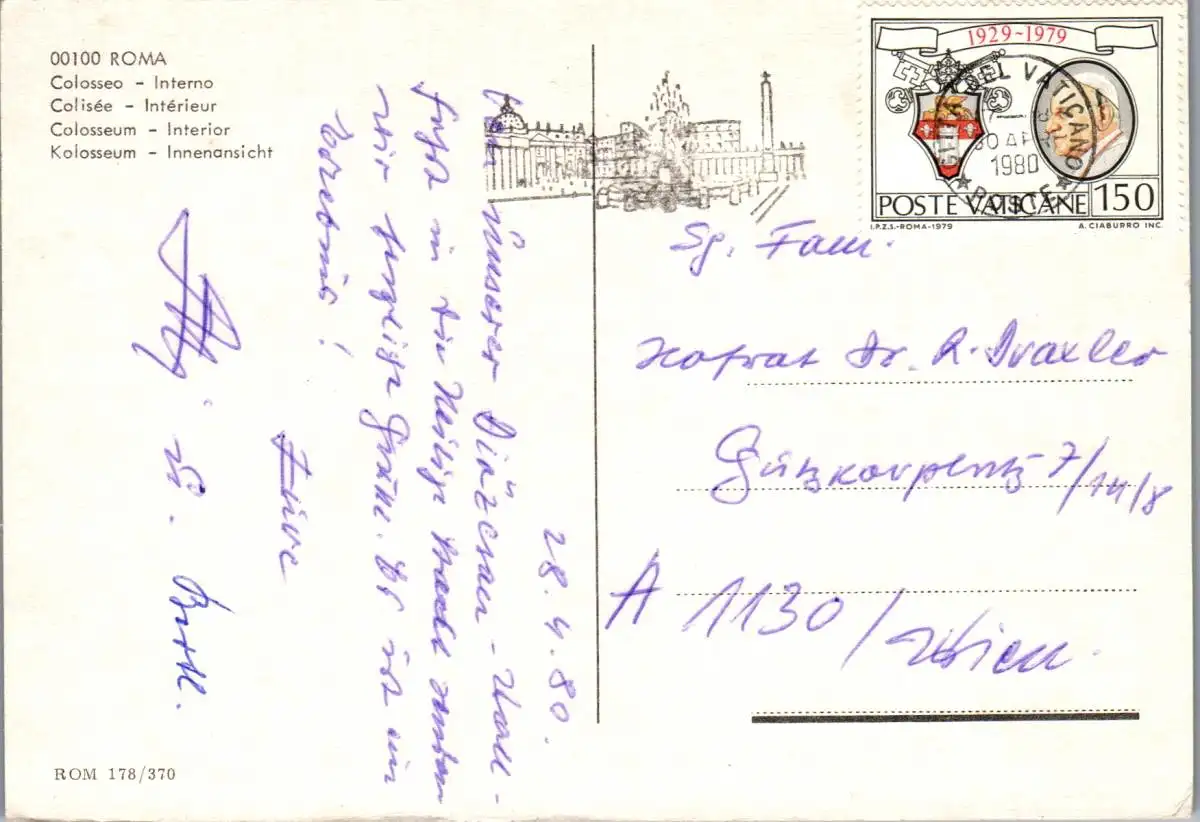 00100 ROMA
Colosseo - Interno
Colisée - Intérieur
Colosseum - Interior
Kolosseum - Innenansicht
1929-1979
CITTÀ DEL VATICANO
30 APR
1980
POSTE
POSTE VATICANE 150
I.P.Z.S.-ROMA-1979
A. CIABURRO INC.
28. 4. 80.
Von unserer Diözesan-Wall-
fahrt in die Heilige Stadt senden
wir herzliche Grüße. Es ist ein
Erlebnis!
Eure
u. Bertl.
Sg. Fam.
Hofrat Dr. R. Draxler
Gutzkowplatz 7/14/8
A 1130/Wien.
ROM 178/370